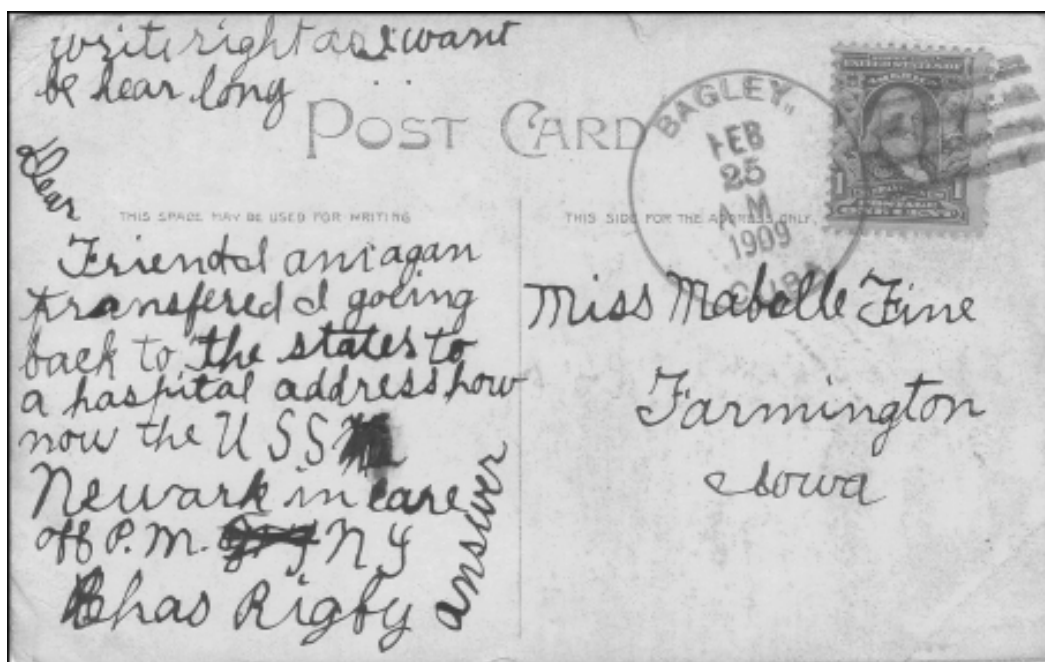 write right as i want
be hear long
POST CARD
BAGLEY,
FEB
25
A M
1909
CUBA
THIS SPACE MAY BE USED FOR WRITING
THIS SIDE FOR THE ADDRESS ONLY.
Dear
Friend I am agan
transfered I going
back to the states to
a hospital address how
now the U S S
Newark in care
off P. M. N Y
Chas Rigby
answer
Miss Mabelle Fine
Farmington
Iowa